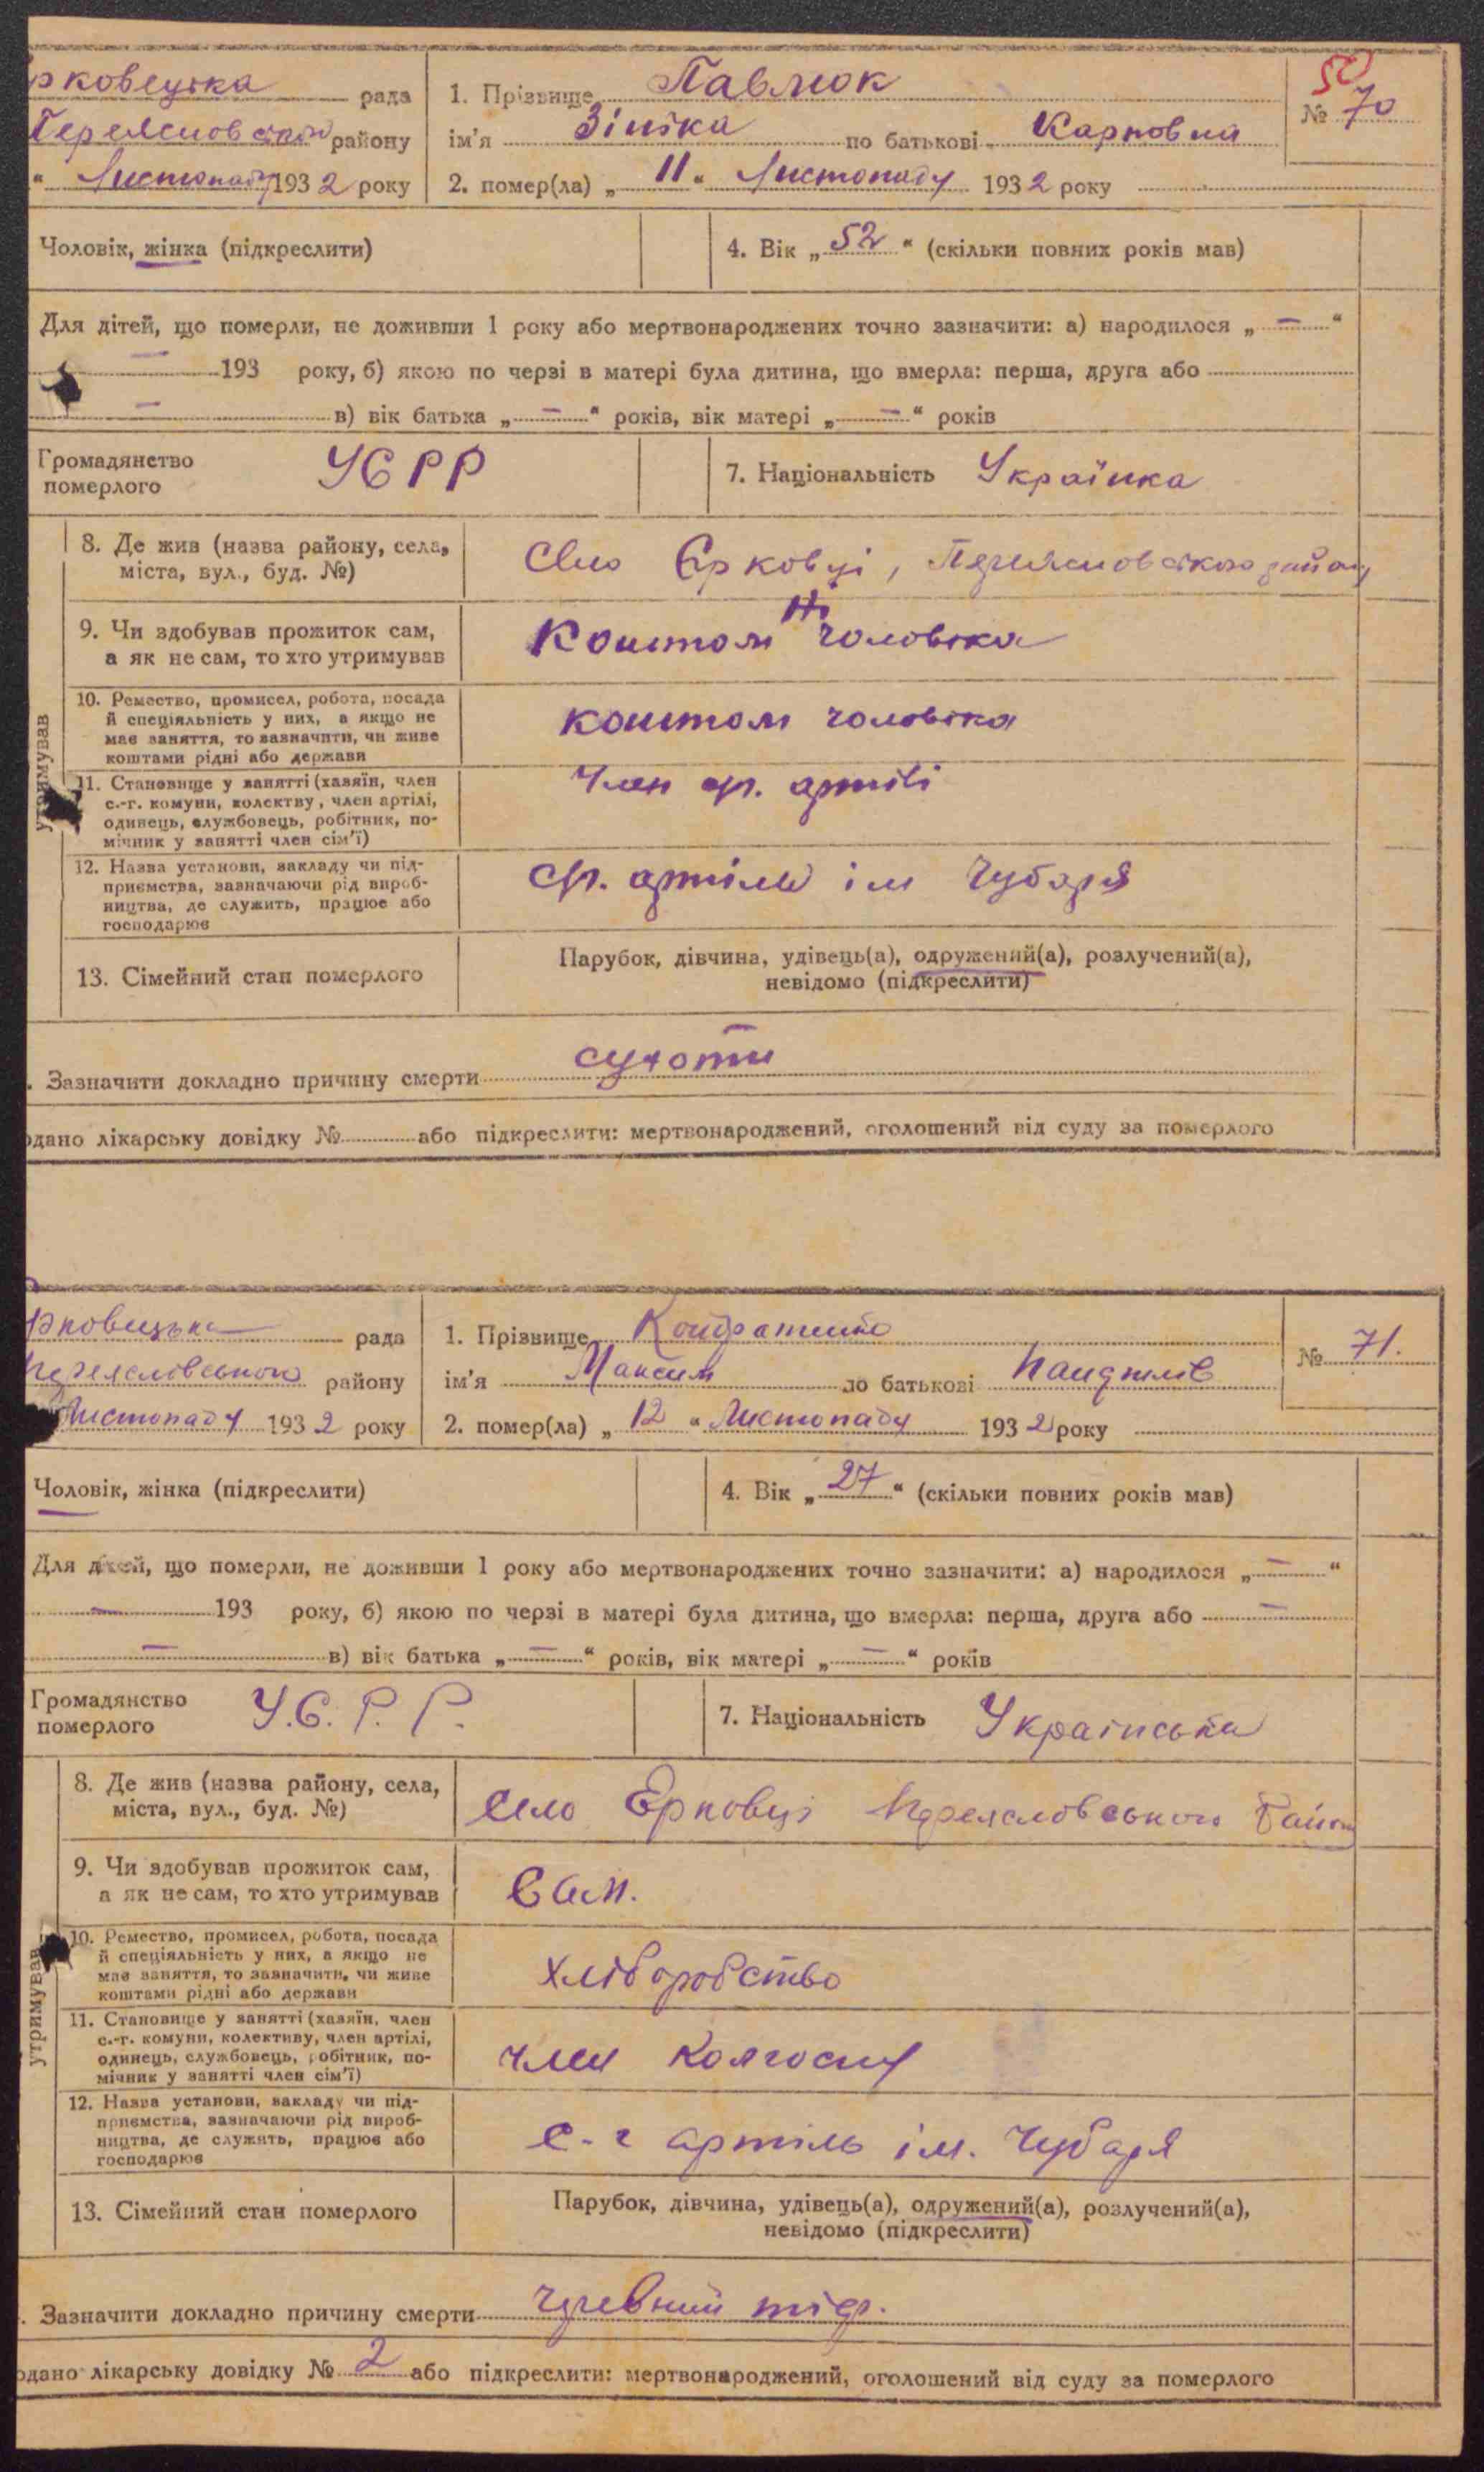 рковецька рада
Переяслов ського району
" Листопаду 1932 року
1. Прізвище Павлюк
ім'я Зінька по батькові Карповна
2. помер(ла) „ 11 " Листопаду 1932 року
50
№ 70
Чоловік, жінка (підкреслити)
4. Вік „ 52 " (скільки повних років мав)
Для дітей, що померли, не доживши 1 року або мертвонароджених точно зазначити: а) народилося „ — "
— 193 року, б) якою по черзі в матері була дитина, що вмерла: перша, друга або
— в) вік батька „ — " років, вік матері „ — " років
Громадянство
померлого
УСРР
7. Національність Українка
8. Де жив (назва району, села,
міста, вул., буд. №)
Село Єрковці, Переясловського району
9. Чи здобував прожиток сам,
а як не сам, то хто утримував
Коштом чоловіка
10. Ремество, промисел, робота, посада
й спеціяльність у них, а якщо не
має заняття, то зазначити, чи живе
коштами рідні або держави
коштом чоловіка
утримував
11. Становище у занятті (хазяїн, член
с.-г. комуни, колектву, член артілі,
одинець, службовець, робітник, по-
мічник у занятті член сім'ї)
Член ср. артілі
12. Назва установи, закладу чи під-
приємства, зазначаючи рід вироб-
ництва, де служить, працює або
господарює
ср. артіль ім Чубаря
13. Сімейний стан померлого
Парубок, дівчина, удівець(а), одружений(а), розлучений(а),
невідомо (підкреслити)
. Зазначити докладно причину смерти сухоти
одано лікарську довідку № або підкреслити: мертвонароджений, оголошений від суду за померлого
рковецька рада
Переясловського району
Листопаду 1932 року
1. Прізвище Кондратенко
ім'я Максим по батькові
2. помер(ла) „ 12 " Листопаду 1932 року
№ 71.
Чоловік, жінка (підкреслити)
4. Вік „ 27 " (скільки повних років мав)
Для дітей, що померли, не доживши 1 року або мертвонароджених точно зазначити: а) народилося „ — "
— 193 року, б) якою по черзі в матері була дитина, що вмерла: перша, друга або —
— в) вік батька „ — " років, вік матері „ — " років
Громадянство
померлого
У.С.Р.Р.
7. Національність Українська
8. Де жив (назва району, села,
міста, вул., буд. №)
село Єрковці Переясловського Район
9. Чи здобував прожиток сам,
а як не сам, то хто утримував
Сам.
10. Ремество, промисел, робота, посада
й спеціяльність у них, а якщо не
має заняття, то зазначити, чи живе
коштами рідні або держави
хліборобство
утримував
11. Становище у занятті (хазяїн, член
с.-г. комуни, колективу, член артілі,
одинець, службовець, робітник, по-
мічник у занятті член сім'ї)
член Колгоспу
12. Назва установи, закладу чи під-
приємства, зазначаючи рід вироб-
ництва, де служить, працює або
господарює
с.-г артіль ім. Чубаря
13. Сімейний стан померлого
Парубок, дівчина, удівець(а), одружений(а), розлучений(а),
невідомо (підкреслити)
. Зазначити докладно причину смерти чревний тіф.
одано лікарську довідку № 2 або підкреслити: мертвонароджений, оголошений від суду за померлого